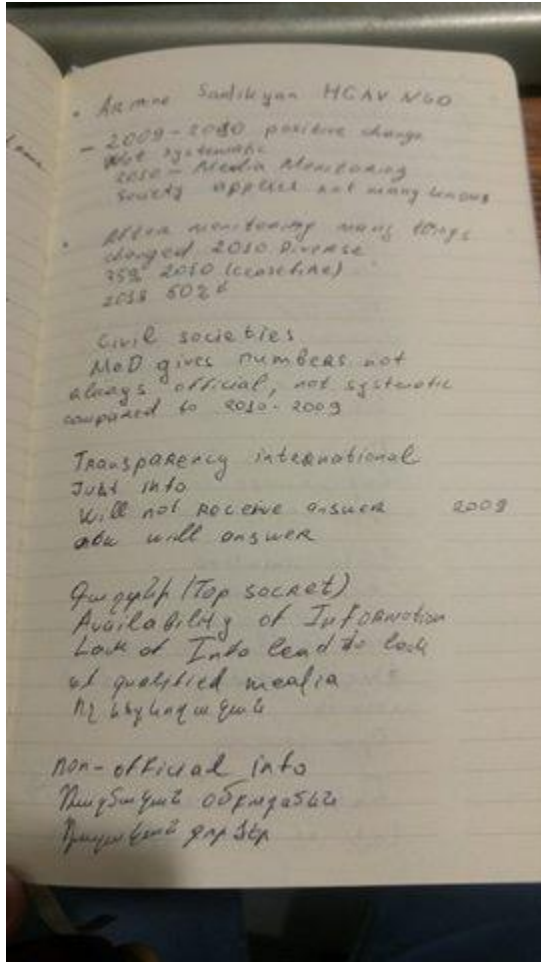 • Armine Sadikyan HCAV NGO
- 2009-2010 positive change
Not systematic
2010 - Media Monitoring
Society applies not many knows
• After monitoring many things
changed 2010 Diverse
35% 2010 (ceasefire)
2018 60%
Civil societies
MoD gives numbers not
always official, not systematic
compared to 2010-2009
Transparency international
Just info
Will not receive answer 2009
will answer
Գաղտնի (Top socret)
Availability of Information
Lack of Info lead to lack
of qualified media
Ոչ
non-official info
Ռազմական օբրուդաններ